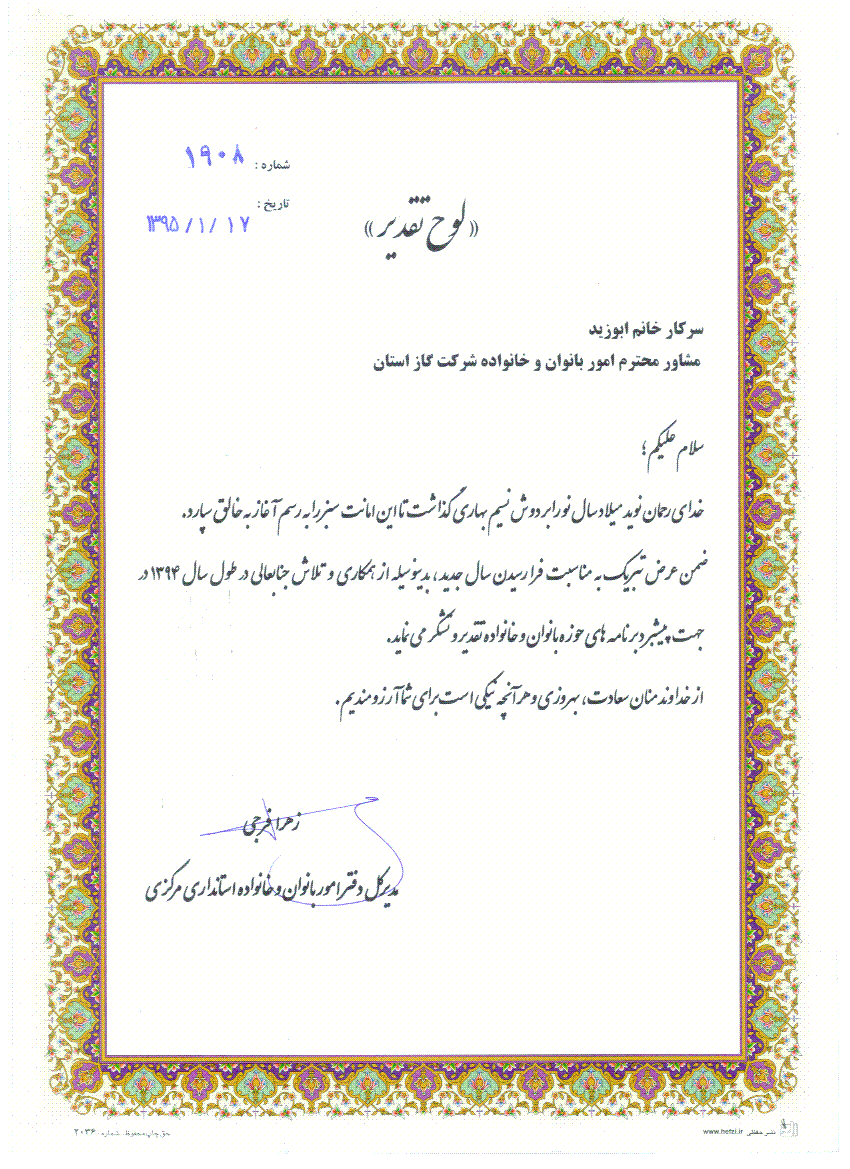 شماره : ۱۹۰۸
تاریخ : ۱۳۹۵/۱/۱۷
«لوح تقدیر»
سرکار خانم ابوزید
مشاور محترم امور بانوان و خانواده شرکت گاز استان
سلام علیکم؛
خدای رحمان نوید میلاد سال نو را بر دوش نسیم بهاری گذاشت تا این امانت سبز را به رسم آغاز به خالق سپارد.
ضمن عرض تبریک به مناسبت فرا رسیدن سال جدید، بدینوسیله از همکاری و تلاش جنابعالی در طول سال ۱۳۹۴ در
جهت پیشبرد برنامه های حوزه بانوان و خانواده تقدیر و تشکر می نماید.
از خداوند منان سعادت، بهروزی و هر آنچه نیکی است برای شما آرزومندیم.
زهرا فرجی
مدیرکل دفتر امور بانوان و خانواده استانداری مرکزی
نشر حفظی www.hefzi.ir
حق چاپ محفوظ. شماره: ۲۰۳۶